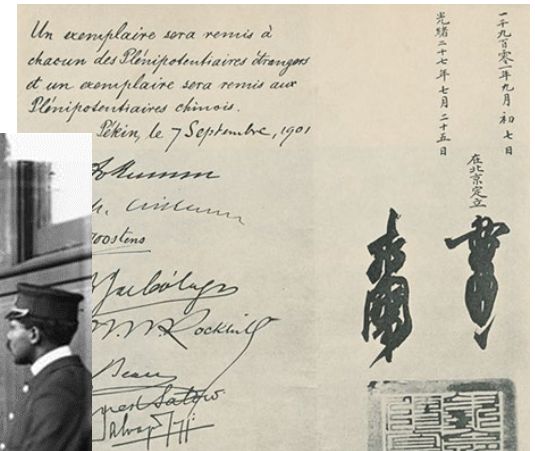 Un exemplaire sera remis à
chacun des Plénipotentiaires étrangers
et un exemplaire sera remis aux
Plénipotentiaires chinois.
Pékin, le 7 Septembre, 1901
oostens
W. W. Rockhill
Beau
Satow
一千九百零一年九月初七日
光緒二十七年七月二十五日
在北京定立